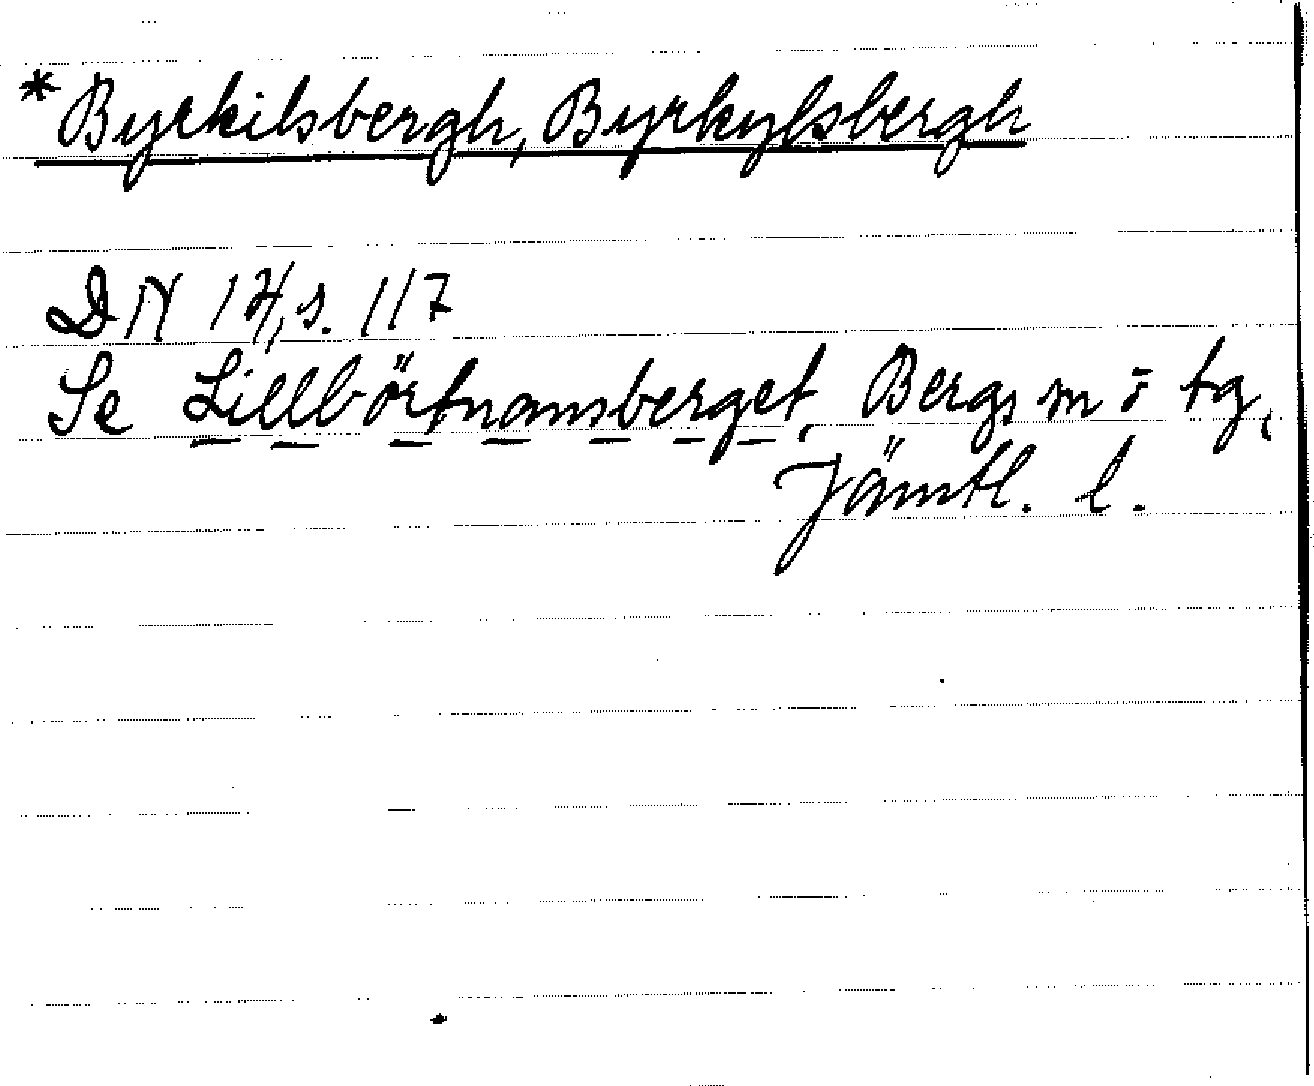 *Byrkilsbergh, Byrkylsbergh
DN 14, s. 117
Se Lillbörtnansberget, Bergs sn o tg,
Jämtl. l.